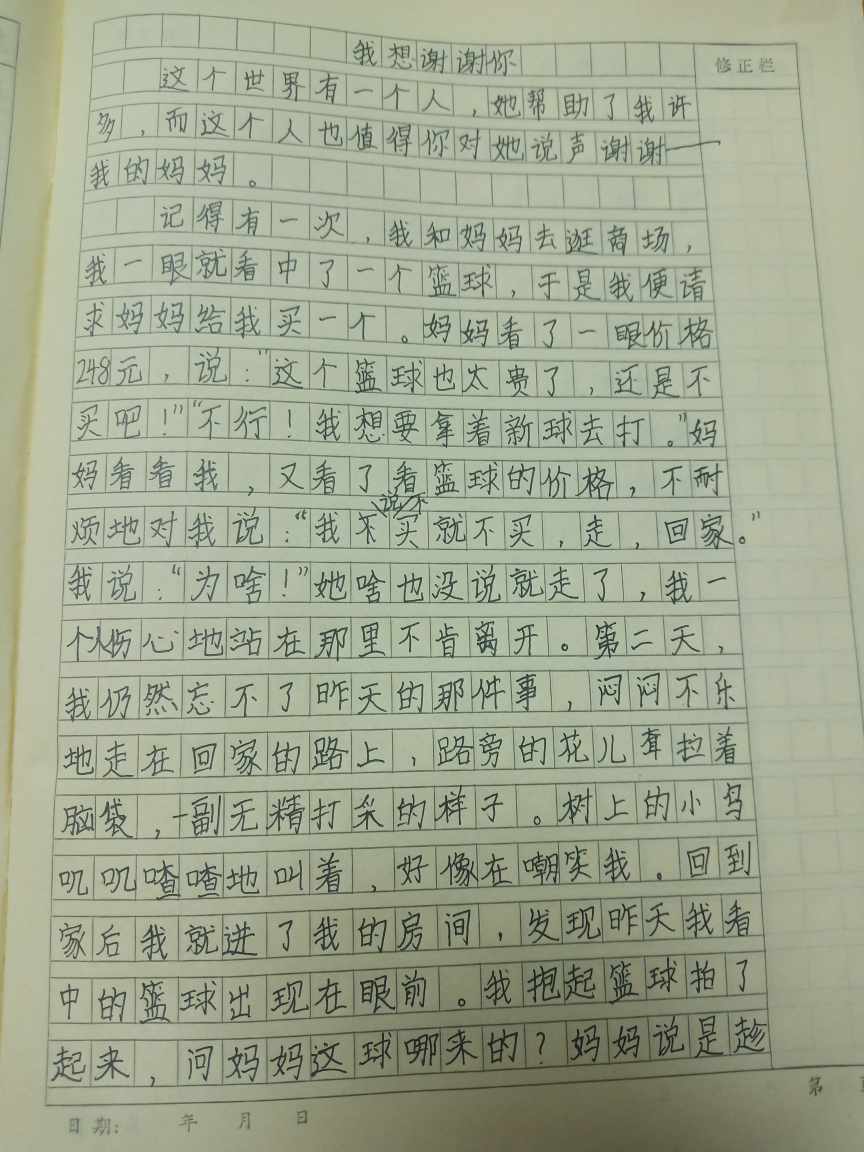 我想谢谢你
修正栏
这个世界有一个人，她帮助了我许
多，而这个人也值得你对她说声谢谢——
我的妈妈。
记得有一次，我和妈妈去逛商场，
我一眼就看中了一个篮球，于是我便请
求妈妈给我买一个。妈妈看了一眼价格
248元，说："这个篮球也太贵了，还是不
买吧！""不行！我想要拿着新球去打。"妈
妈看看我，又看了看篮球的价格，不耐
烦地对我说："我说不买就不买，走，回家。"
我说："为啥！"她啥也没说就走了，我一
个人伤心地站在那里不肯离开。第二天，
我仍然忘不了昨天的那件事，闷闷不乐
地走在回家的路上，路旁的花儿耷拉着
脑袋，一副无精打采的样子。树上的小鸟
叽叽喳喳地叫着，好像在嘲笑我。回到
家后我就进了我的房间，发现昨天我看
中的篮球出现在眼前。我抱起篮球拍了
起来，问妈妈这球哪来的？妈妈说是趁
第
日期: 年 月 日